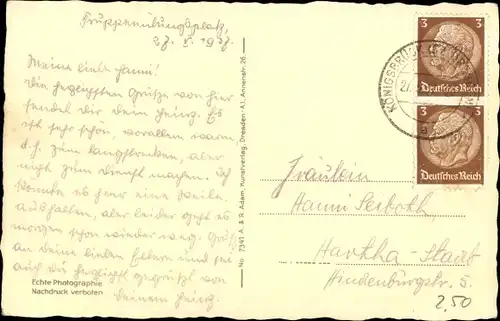 Truppenübungsplatz,
27. V. 1937.
Meine liebe Hanni!
Die herzlichsten Grüße von hier
sendet dir dein Heinz. Es
ist sehr schön, vorallem warm
d.h. zum langstrecken, aber
nicht zum Dienst machen. Ich
könnte es hier eine Weile
aushalten, aber leider geht es
morgen schon wieder weg. Grüß
an deine lieben Eltern und sei
auch du herzlichst gegrüßt von
deinem Heinz.
Echte Photographie
Nachdruck verboten
No. 7341 A. & R. Adam, Kunstverlag, Dresden-A1, Annenstr. 26
3 3
Deutsches Reich
3 3
Deutsches Reich
KÖNIGSBRÜCK
27.
a
Fräulein
Hanni
Hartha-Stadt
Hindenburgstr. 5.
2,50